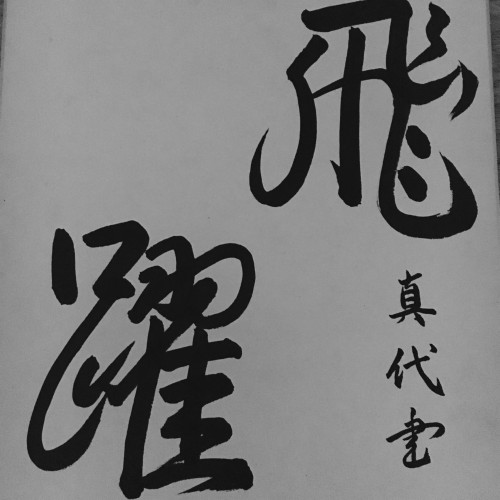 飛躍
真代書